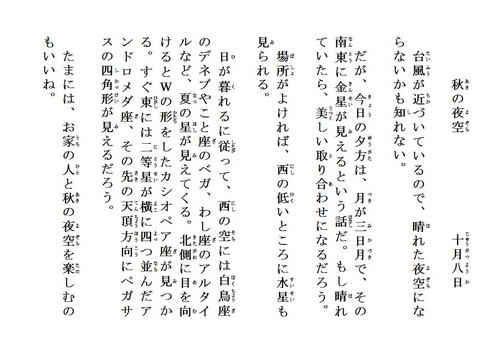 秋の夜空　十月八日
台風が近づいているので、晴れた夜空にな
らないかも知れない。
だが、今日の夕方は、月が三日月で、その
南東に金星が見えるという話だ。もし晴れ
ていたら、美しい取り合わせになるだろう。
場所がよければ、西の低いところに水星も
見られる。
日が暮れるに従って、西の空には白鳥座
のデネブやこと座のベガ、わし座のアルタイ
ルなど、夏の星が見えてくる。北側に目を向
けるとWの形をしたカシオペア座が見つか
る。すぐ東には二等星が横に四つ並んだア
ンドロメダ座、その先の天頂方向にペガサ
スの四角形が見えるだろう。
たまには、お家の人と秋の夜空を楽しむの
もいいね。